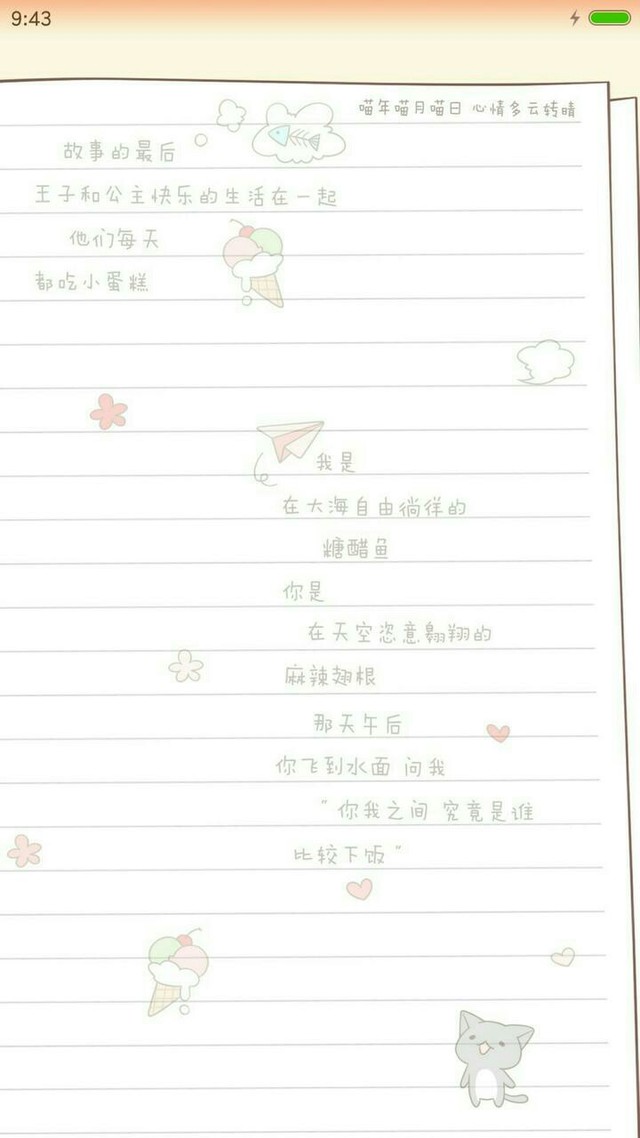 9:43
喵年喵月喵日 心情多云转晴
故事的最后
王子和公主快乐的生活在一起
他们每天
都吃小蛋糕
我是
在大海自由徜徉的
糖醋鱼
你是
在天空恣意翱翔的
麻辣翅根
那天午后
你飞到水面 问我
"你我之间 究竟是谁
比较下饭"